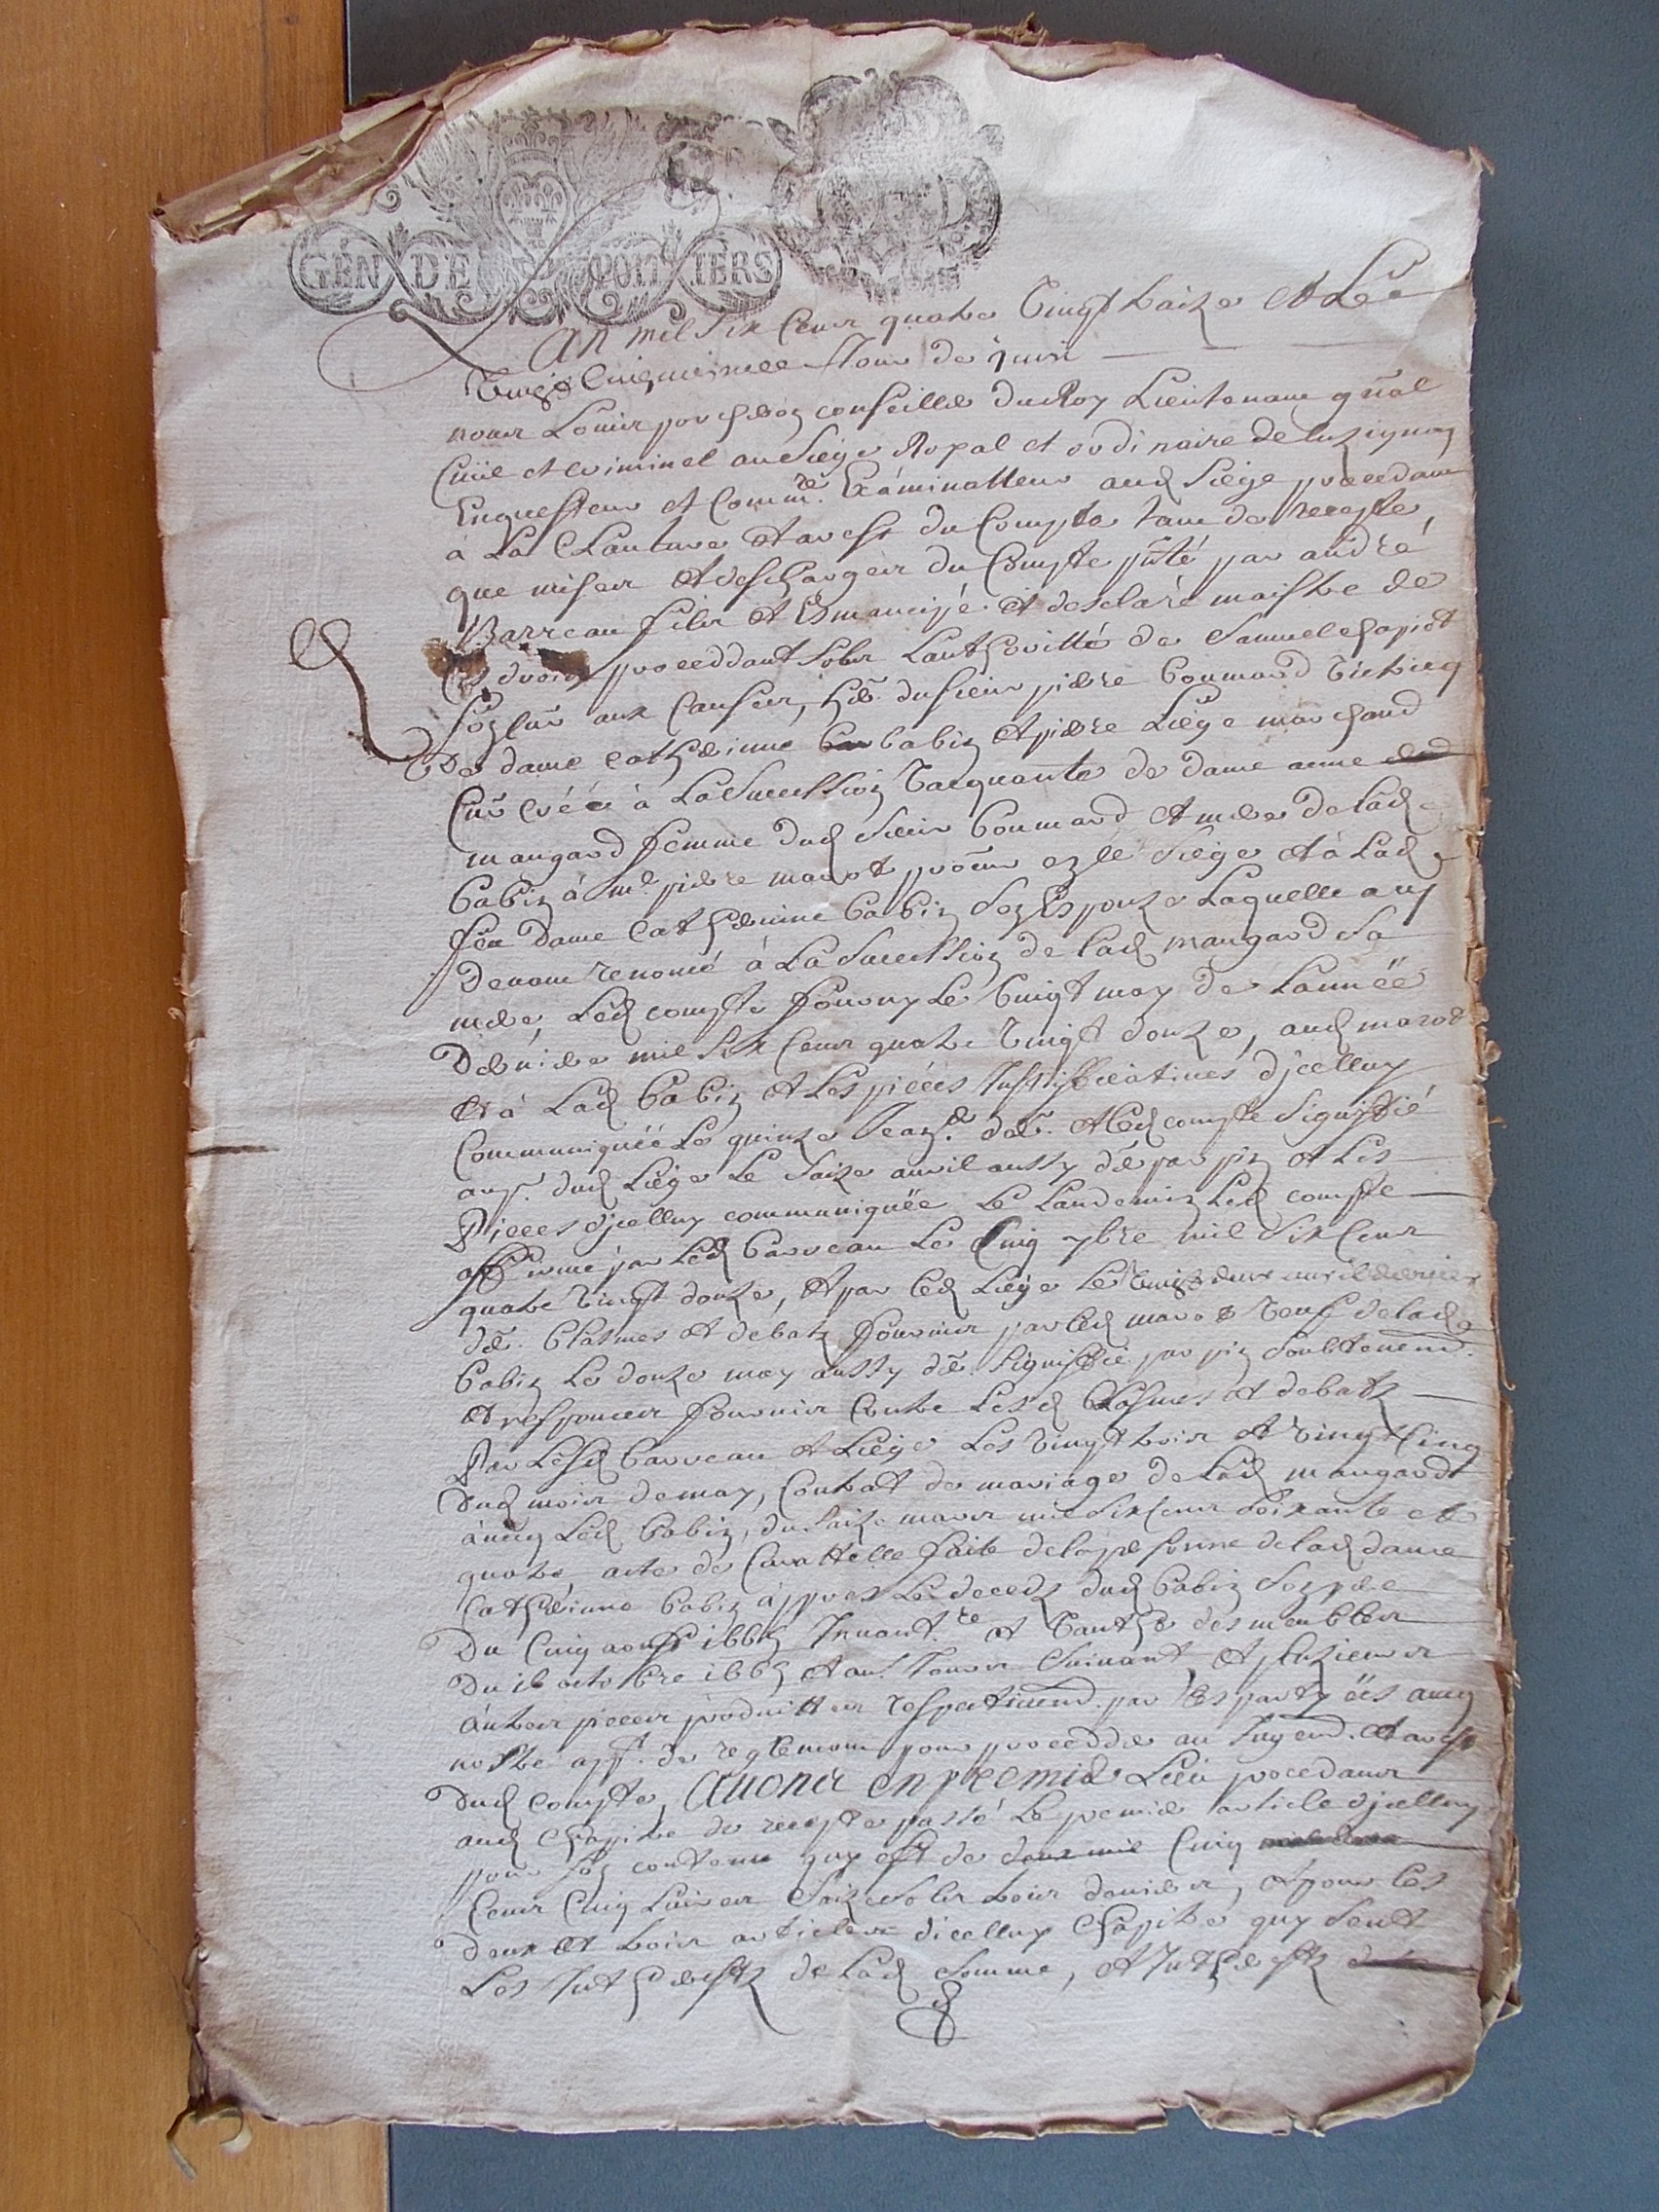 GEN DE POITIERS
An mil six Cens quatre Vingt traize et Le
Vingt Cinquiesme Jour de juin
nous Louis porcheron conseiller du Roy Lieutenant gñal
Civil et criminel au Siege Royal et ordinaire de luzignan
Enquesteur et Comm.re Examinatteur aud Siege procedant
à La Clauture et arest du Compte tant de recepte,
que mises et descharges du Compte pñté par andré
Barreau fils et Emancipé et desclaré maistre de
ses droitz proceddant soubz Lauthoritté de Samuel chapiot
son Cur aux Causes, her. du sieur pierre Boumard vivant
De dame catherinne babin et pierre Liège marchand
Cur créé à La Succession Vacquante de dame anne
maugard femme dud Sieur Boumard et mere de lad
babin à m.e pierre marot procur en ce Siege et à Lad
feu Dame Catherinne babin son Espouze Laquelle a cy
Devant renoncé à La Succession de lad maugard sa
mere, Led compte fourny Le Vingt may de L'année
Derniere mil six Cens quatre Vingt douze, aud marot
et à Lad babin et Les pieces Justifficatives d'jcelluy
Communiquéé Le quinze
aud Liège Le Saize auvril aussy der par pin et Les
Pieces d'jcelluy communiquée Le Landemin Led compte
affirmé par Led barreau Le Cinq 7bre mil six Cens
quatre Vingt douze, et par led Liège Le Vingt deux auvril dernier
der. blasmes et debatz fournis par led marot veuf de lad
babin Le douze may aussy der. signiffié par pin soubstenem.
et responces fournis Contre Lesd blasmes et debatz
Par Lesd barreau et Liège Les Vingt trois et Vingt Cinq
dud mois de may, Contrat de mariage de Lad maugard
avecq Led babin, du saize mars mil six Cens soixante et
quatre acte de Curattelle faite de la personne de lad dame
Catherinne babin apprés Le deceds dud babin son pere
Du Cinq aoust 1669 Invant.re et Vanthe des meubles
Du 16 octobre 1669 et au.t Jours suivant, et pluzieurs
autres pieces produittes respectivem. par Les partyées avecq
nostre app.t de reglement pour procedder au Jugem. et arest
dud compte, Avons en premier Lieu procedant
aud Chapitre de recepte passé Le premier article d'jcelluy
pour son contenu quy est de deux mil Cinq
Cens Cinq Livres Saize solz trois deniers, et pour les
deux et trois articles d'icelluy Chapitre quy sont
Les Intheretz de Lad Somme, et Intheretz